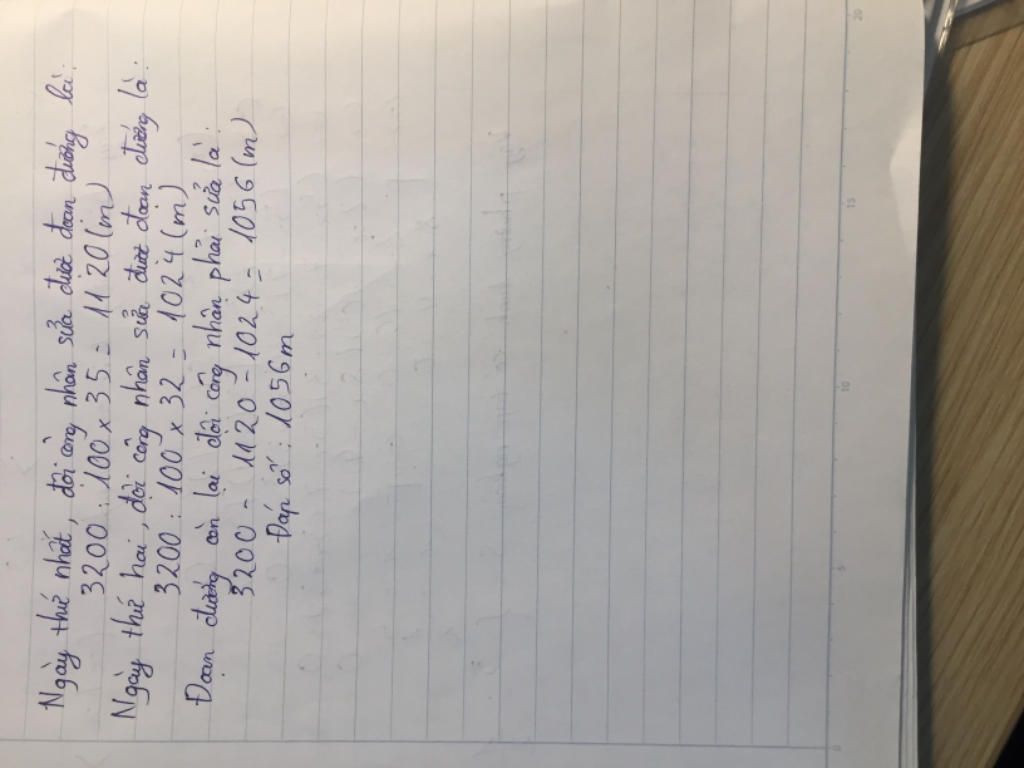 Ngày thứ nhất, đội công nhân sửa được đoạn đường là:
3200 : 100 x 35 = 1120 (m)
Ngày thứ hai, đội công nhân sửa được đoạn đường là:
3200 : 100 x 32 = 1024 (m)
Đoạn đường còn lại đội công nhân phải sửa là:
3200 - 1120 - 1024 = 1056 (m)
Đáp số : 1056m
0
5
10
15
20